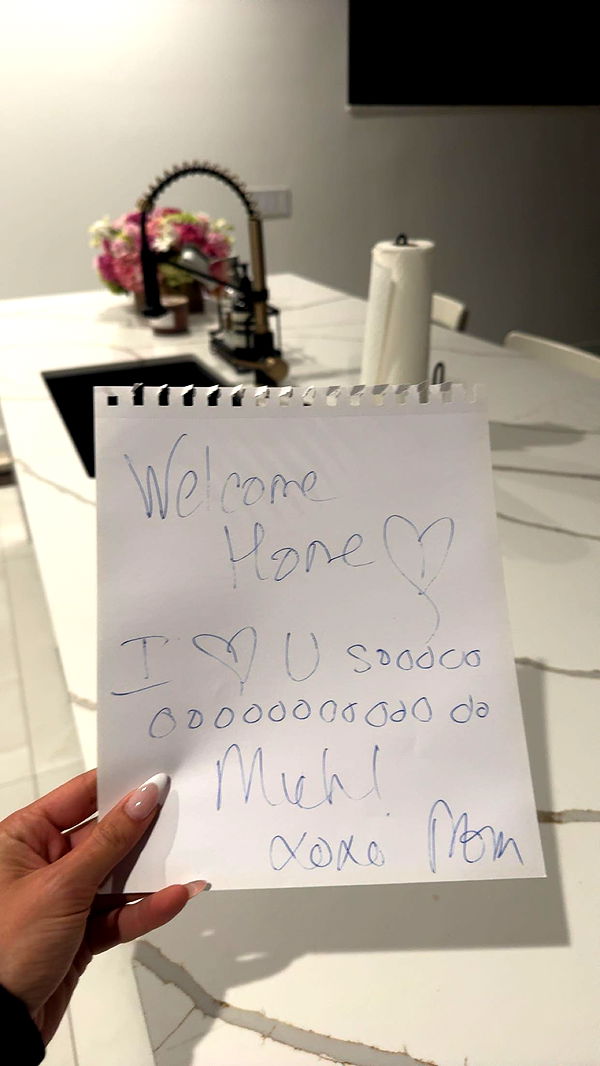 Welcome
Home ♡
I ♡ U soooooo
ooooooooooooo oo
Much!
xoxo Mom